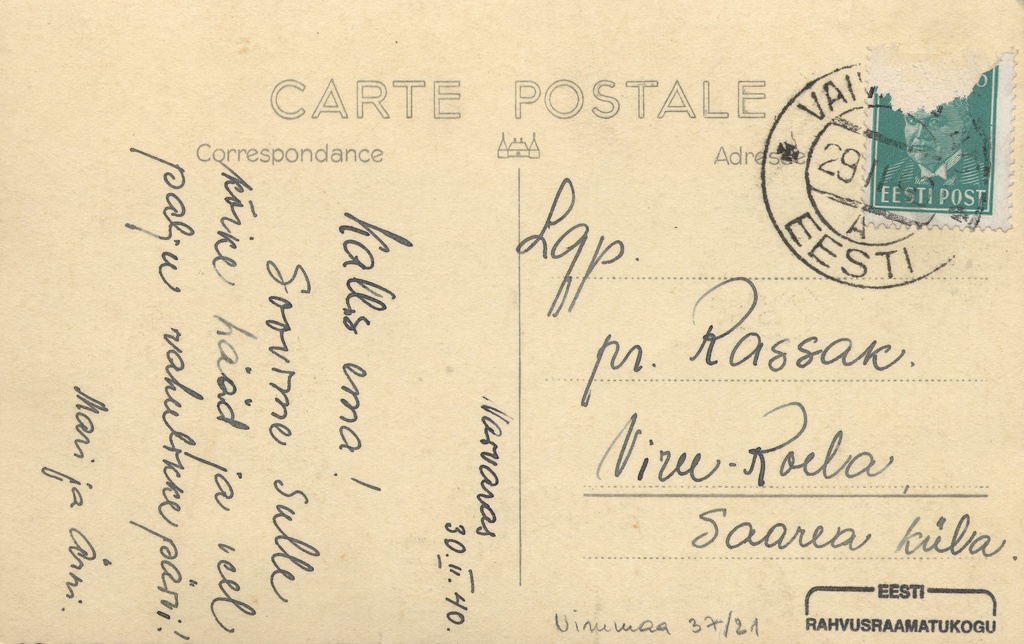 CARTE POSTALE
Correspondance
Adresse
VAIV
29
A
EESTI
EESTI POST
Varvaras
30.II.40.
Kallis ema!
Soovime Sulle
kõike hääd ja veel
palju rahulikke päivi!
Mari ja
Lgp.
pr. Rassak.
Viru-Roela,
Saarea küla.
Virumaa 37/21
EESTI
RAHVUSRAAMATUKOGU